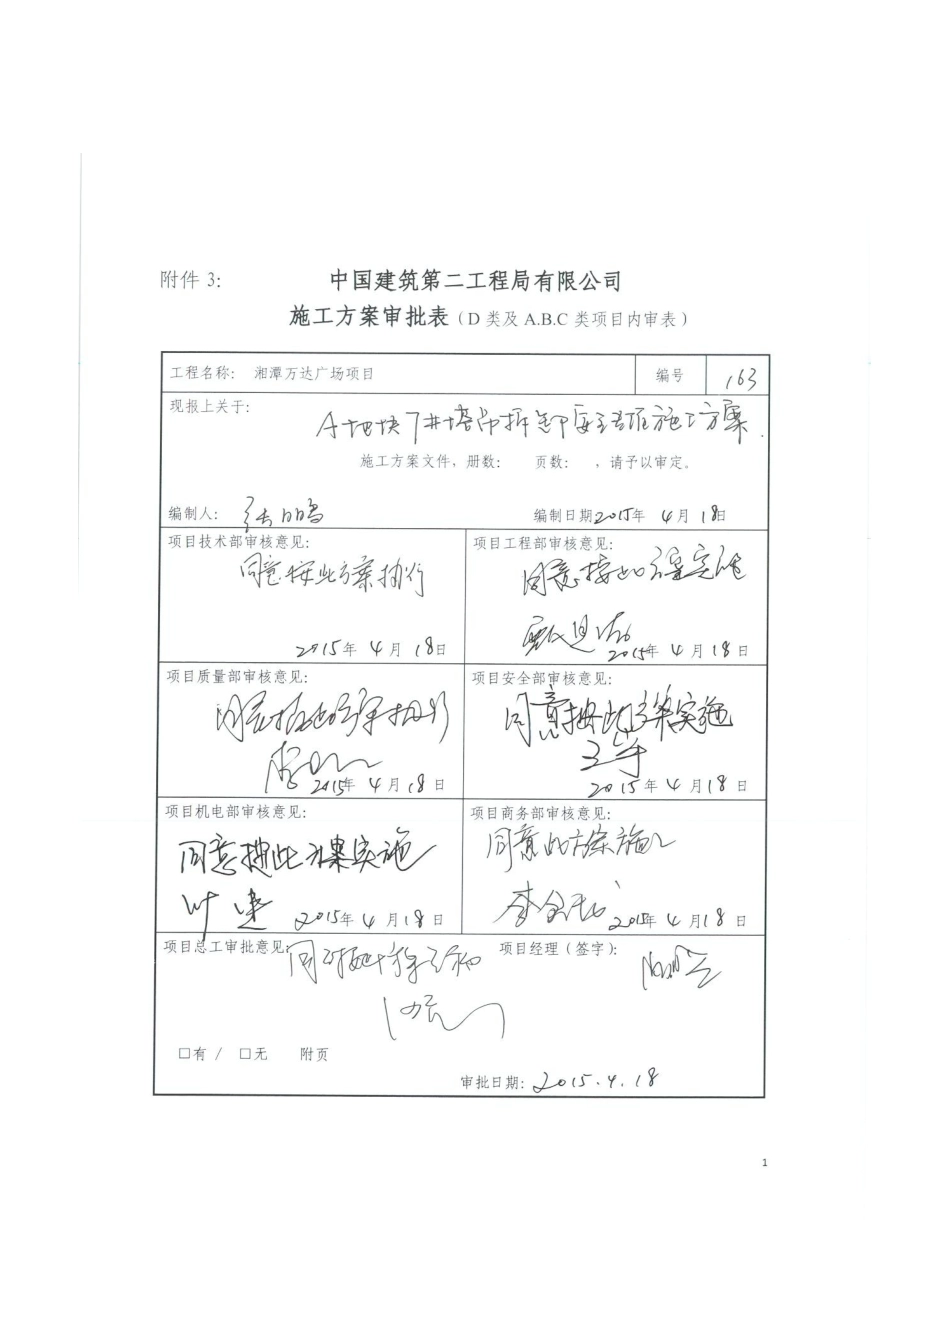 附件 3:
中国建筑第二工程局有限公司
施工方案审批表（D 类及 A.B.C 类项目内审表）
工程名称: 湘潭万达广场项目 编号 163
现报上关于:
A地块7#塔吊拆卸安全专项施工方案
施工方案文件，册数: 页数: ，请予以审定。
编制人: 编制日期2015年 4月 18日
项目技术部审核意见: 项目工程部审核意见:
同意按此方案执行 同意按此方案实施
2015年 4月 18日 2015年 4月 18日
项目质量部审核意见: 项目安全部审核意见:
同意按此方案执行 同意按此方案实施
2015年 4月 18日 2015年 4月 18日
项目机电部审核意见: 项目商务部审核意见:
同意按此方案实施 同意此方案施工
2015年 4月 18日 2015年 4月 18日
项目总工审批意见: 项目经理（签字）:
□有 / □无 附页
审批日期: 2015.4.18
1